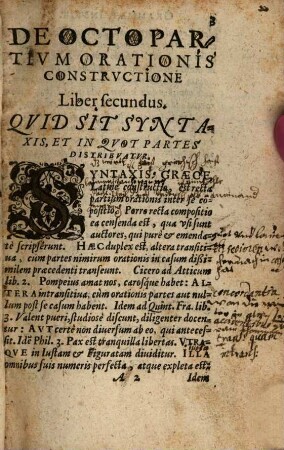 DE OCTO PAR-
TIVM ORATIONIS
CONSTRVCTIONE
Liber secundus.
QVID SIT SYNTA
XIS, ET IN QVOT PARTES
DISTRIBVATVR.
SYNTAXIS: GRÆCE
Latine constructio, est recta
partium orationis inter se co
positio. Porro recta compositio
ea censenda est, qua vsi sunt
auctores, qui pure & emenda-
te scripserunt. HÆC duplex est, altera transiti
ua, cum partes nimirum orationis in casum dissi
milem præcedenti transeunt. Cicero ad Atticum
lib. 2. Pompeius amat nos, carosque habet: AL
TERA intransitiua, cum orationis partes aut nul
lum post se casum habent. Idem ad Quint. Fra. lib.
3. Valent pueri, studiosè discunt, diligenter docen
tur: AVT certè non diuersum ab eo, qui anteces-
sit. Idē Phil. 3. Pax est tranquilla libertas. VTRA
QVE in Iustam & Figuratam diuiditur. ILLA
omnibus suis numeris perfecta, atque expleta est:
A 2 Idem